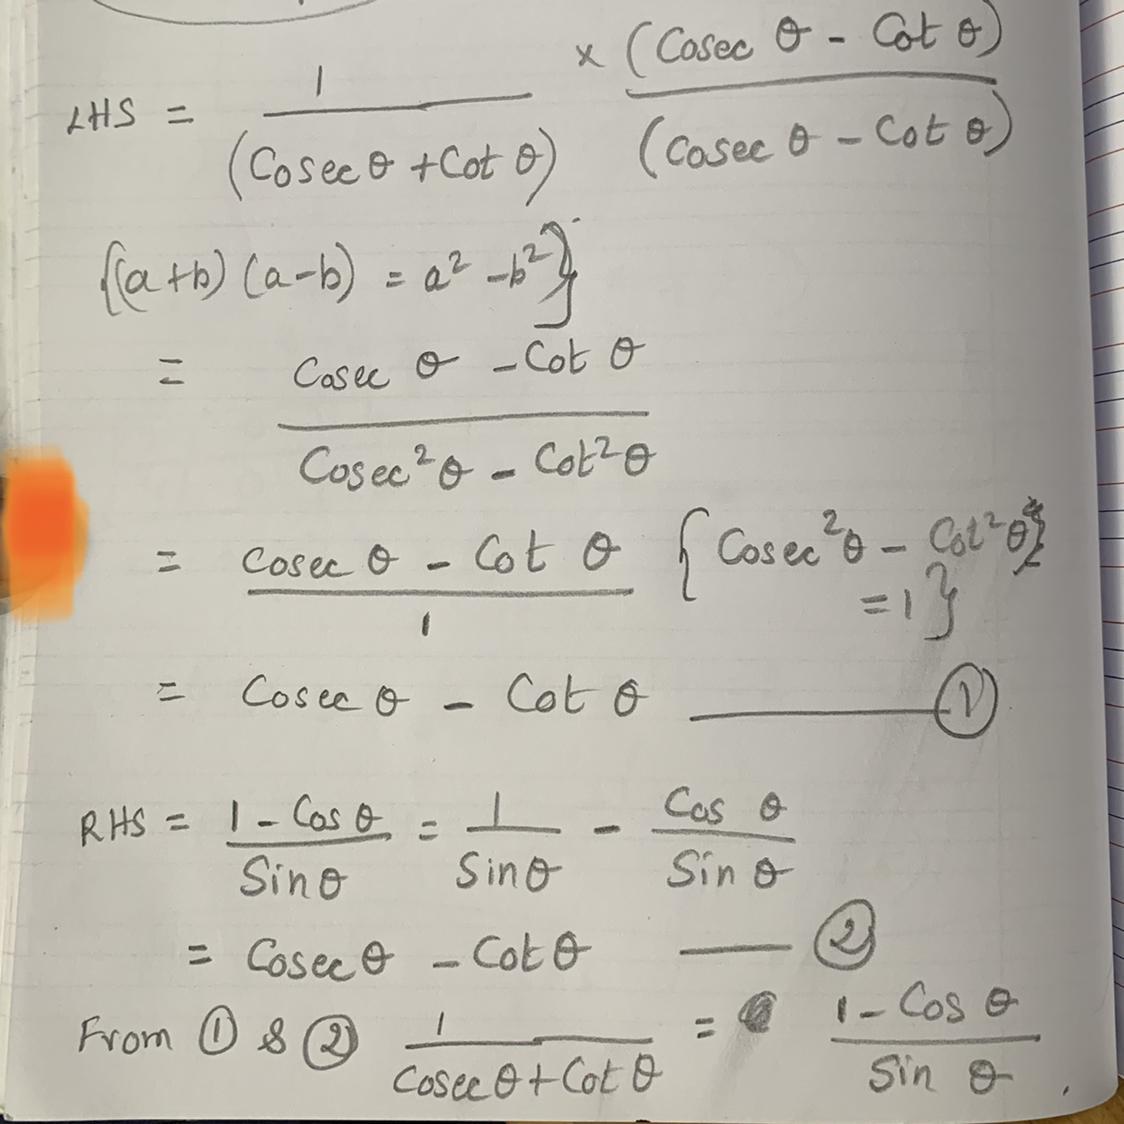 LHS = 1 / (Cosec θ + Cot θ) × (Cosec θ - Cot θ) / (Cosec θ - Cot θ)
{(a+b) (a-b) = a² - b²}
= Cosec θ - Cot θ / Cosec² θ - Cot² θ
= Cosec θ - Cot θ / 1 {Cosec² θ - Cot² θ} = 1}
= Cosec θ - Cot θ ——— ①
RHS = 1 - Cos θ / Sin θ = 1 / Sin θ - Cos θ / Sin θ
= Cosec θ - Cot θ ——— ②
From ① & ② 1 / Cosec θ + Cot θ = 1 - Cos θ / Sin θ .